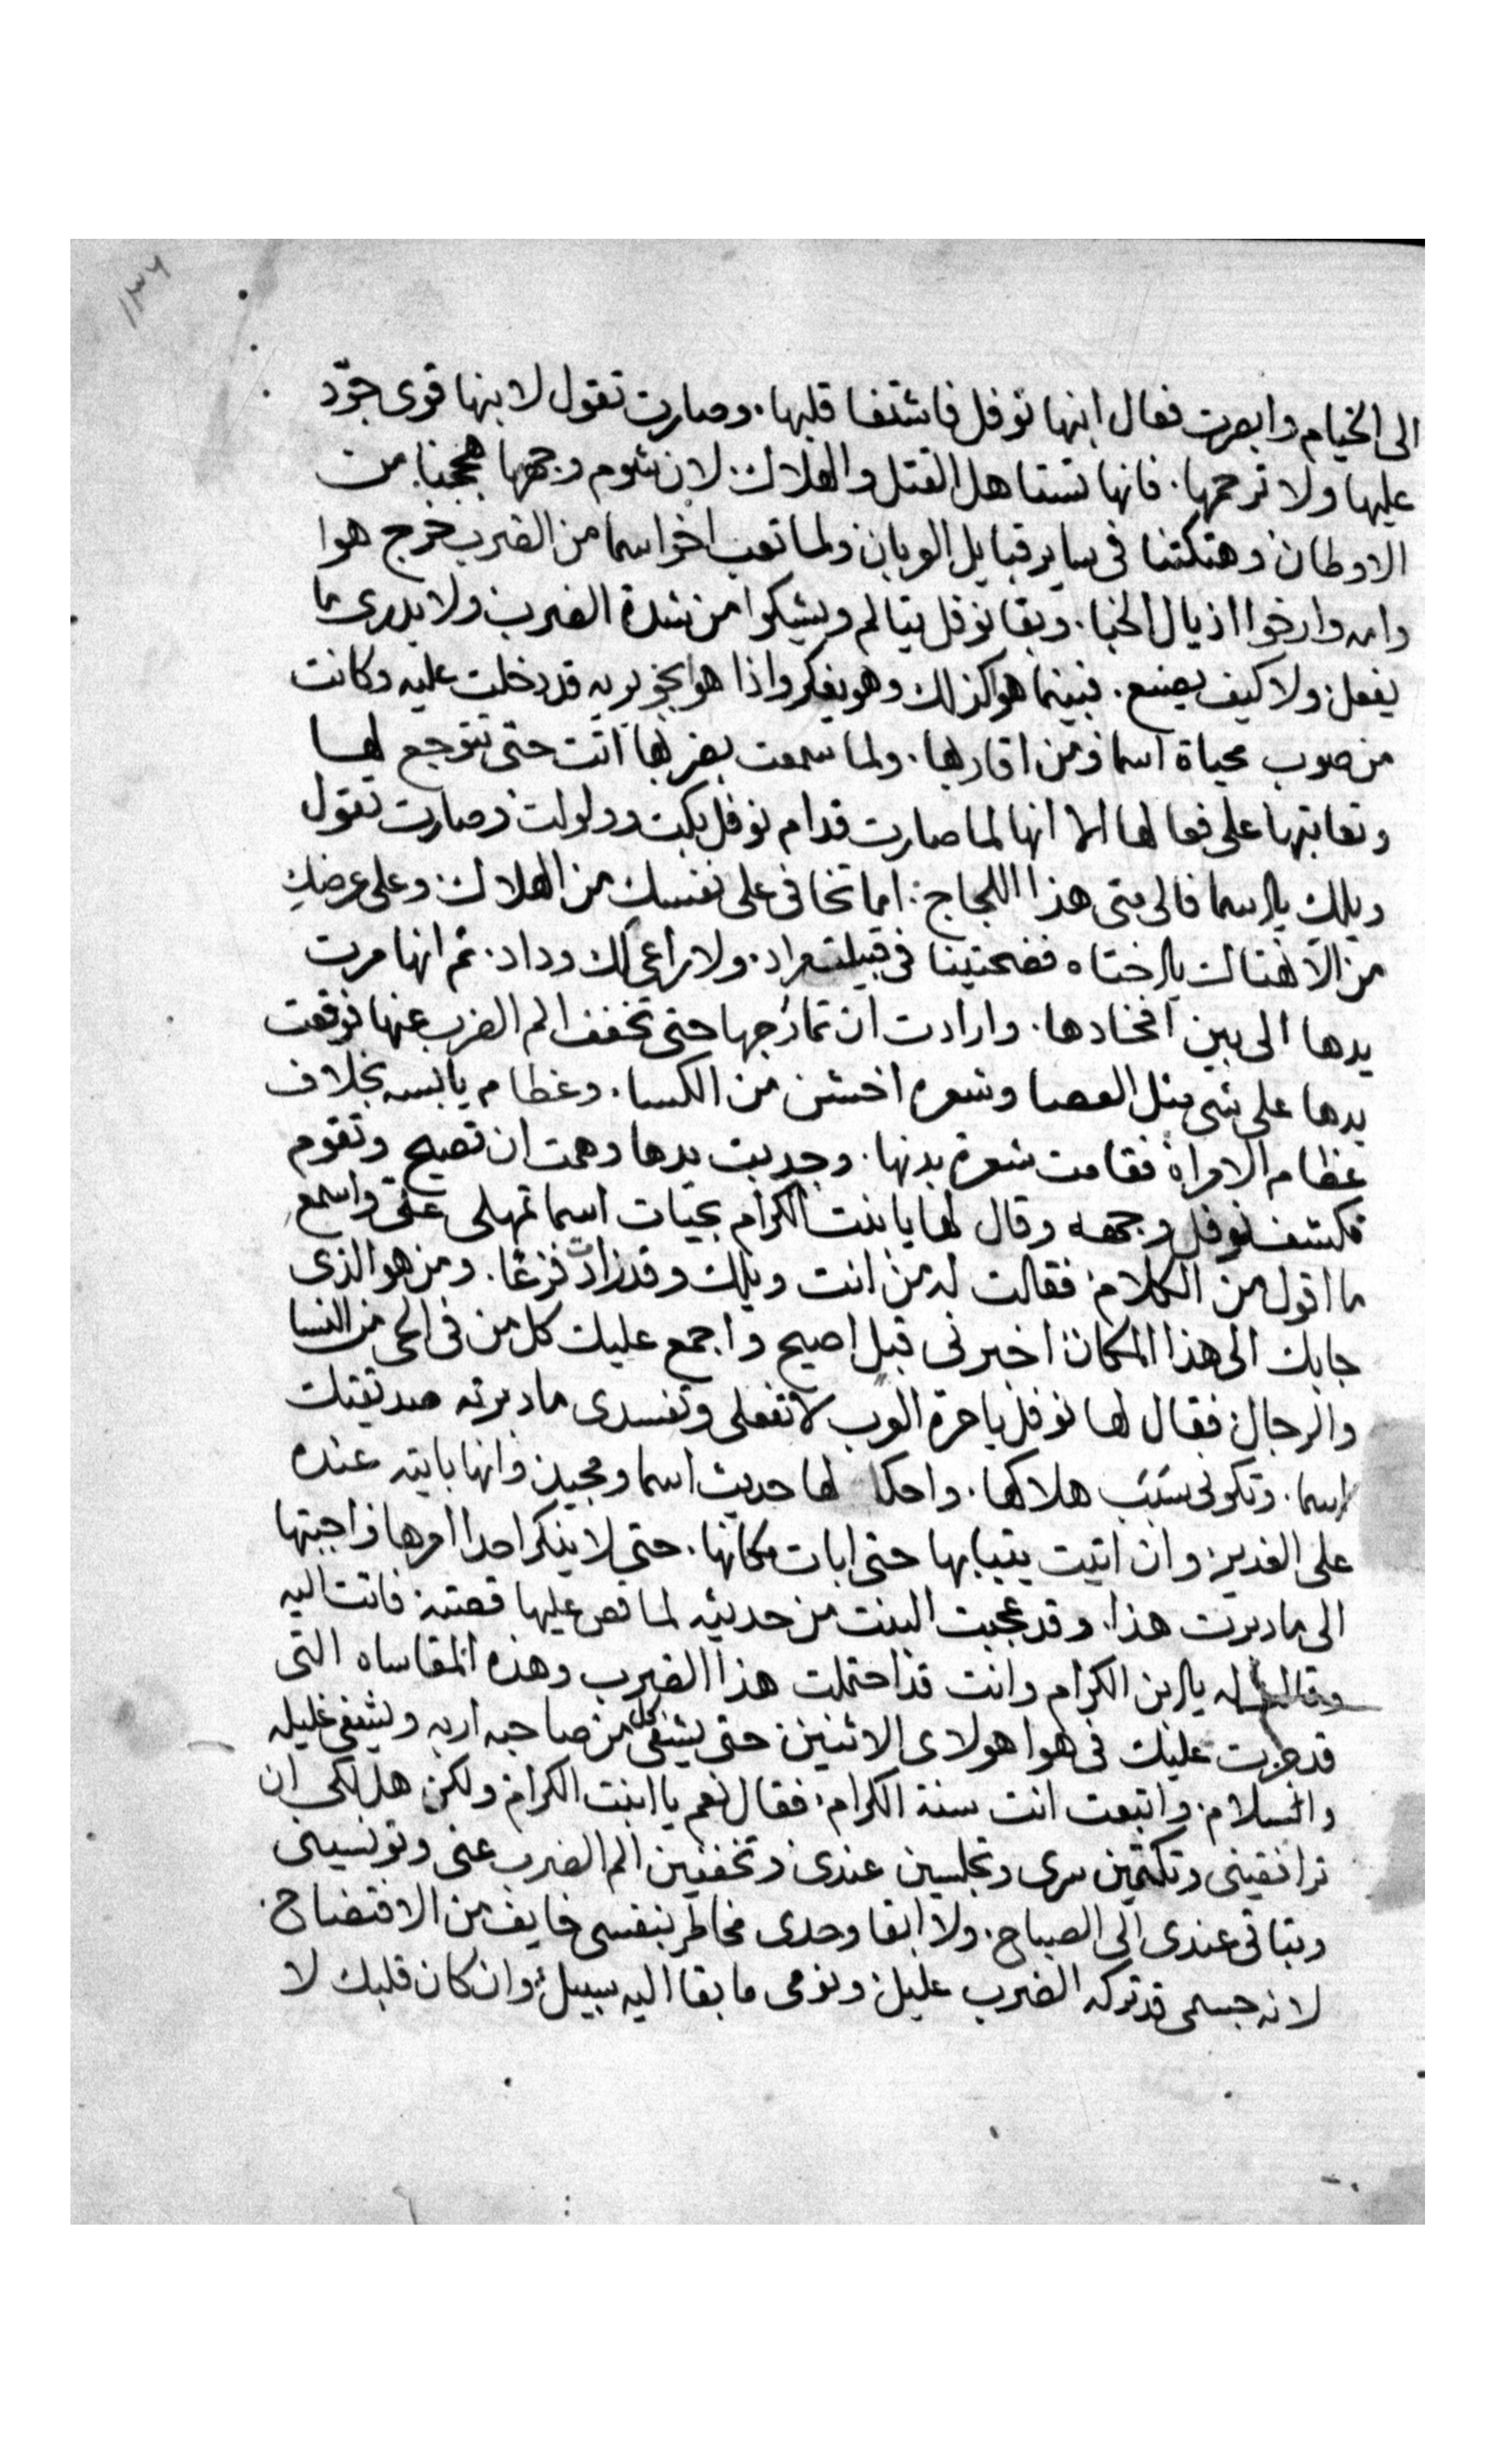 ١٣٦
الى الخيام وابصرت فعال ابنها نوفل فاشتفا قلبها. وصارت تقول لابنها قوى جوّد
عليها ولا ترحمها. فانها تستاهل القتل والهلاك. لان شوم وجهها هججنا من
الاوطان وهتكتنا فى ساير قبايل العربان ولما تعب اخو اسما من الضرب خرج هوا
وامه وارخوا اذيال الخبا. وبقا نوفل يتالم ويشكوا من شدة الضرب ولا يدرى ما
يفعل ولا كيف يصنع. فبينما هو كذلك وهو يفكر واذا هو بجويريه قد دخلت عليه وكانت
من صوب محياة اسما ومن اقاربها. ولما سمعت بضربها اتت حتى تتوجع لها
وتعاتبها على فعالها الا انها لما صارت قدام نوفل بكت وولولت وصارت تقول
ويلك يا اسما فالى متى هذا اللجاج: اما تخافى على نفسك من الهلاك وعلى عرضكِ
من الانهتاك يا اختاه فضحتينا فى قبيلت مراد. ولا راعى لك وداد. ثم انها مرت
يدها الى بين افخادها. وارادت ان تمازجها حتى تخفف الم الضرب عنها فوقعت
يدها على شى مثل العصا وشعره اخشن من الكسا. وعظام يابسه بخلاف
عظام الامراة فقامت شعرة بدنها. وجدبت يدها وهمت ان تصيح وتقوم
فكشف نوفل وجهه وقال لها يا بنت الكرام بحيات اسما تمهلى على واسمع
ما اقول من الكلام فقالت له من انت ويلك وقد زادت فزعًا. ومن هو الذى
جابك الى هذا المكان اخبرنى قبل اصيح واجمع عليك كل من فى الحى من النسا
والرجال فقال لها نوفل يا حرة العرب لا تفعلى وتفسدى ما دبرته صديقتك
اسما. وتكونى سَبَب هلاكها. واحكا لها حديث اسما ومجيد وانها بايته عنده
على الغدير وان اتيت بثيابها حتى ابات مكانها. حتى لا ينكر احدا امرها واجبتها
الى ما دبرت هذا. وقد عجبت البنت من حديثه لما قص عليها قصته فاتت اليه
وقالت له يا ابن الكرام وانت قد احتملت هذا الضرب وهذه المقاساه التى
قد جرت عليك فى هوا هولاى الاثنين حتى يشفى كل من صاحبه اربه ويشفى غليله
والسلام. واتبعت انت سنة الكرام. فقال نعم يا ابنت الكرام ولكن هل لكى ان
ترافقينى وتكتمين سرى وتجلسين عندى وتخففين الم الضرب عنى وتونسينى
وتباتى عندى الى الصباح. ولا ابقا وحدى مخاطر بنفسى خايف من الافتضاح.
لانه جسمى قد تركه الضرب عليل ونومى ما بقا اليه سبيل وان كان قلبك لا